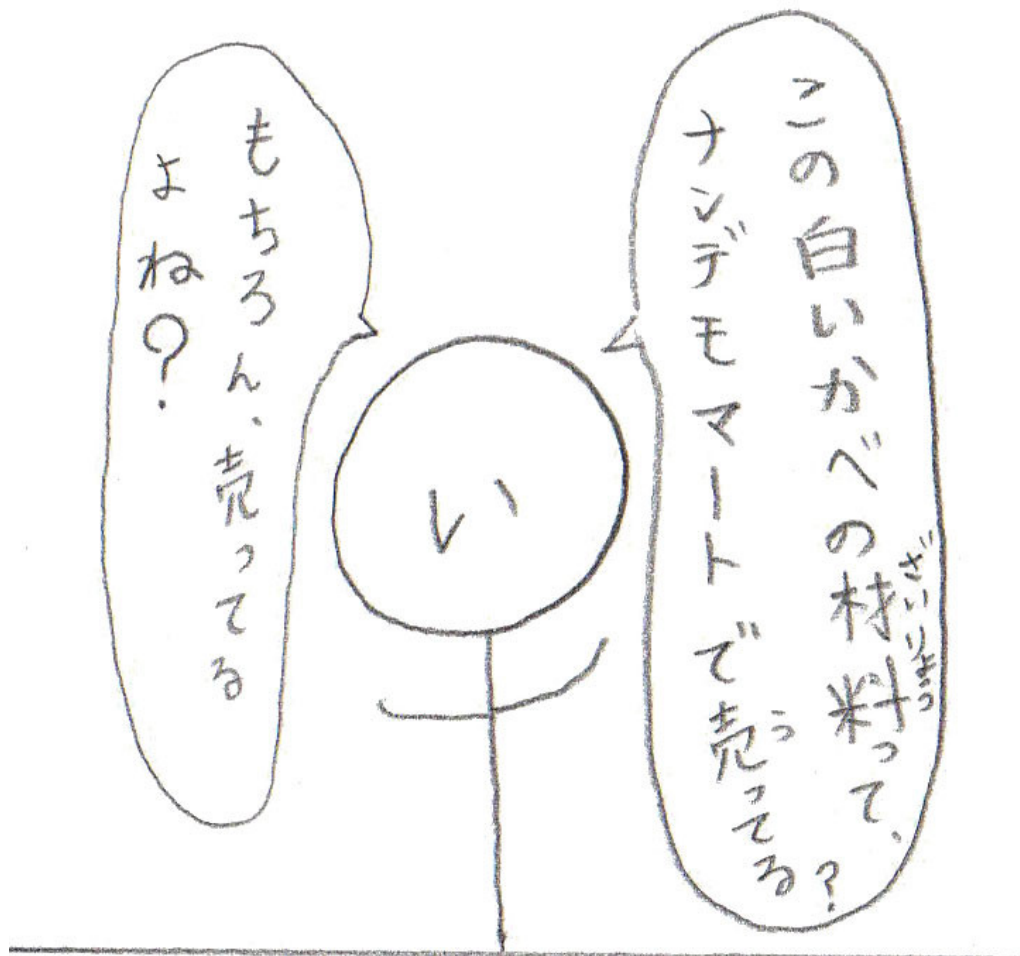 この白いかべの材料って、
ざいりょう
ナンデモマートで売ってる?
う
もちろん、売ってる
よね?
い